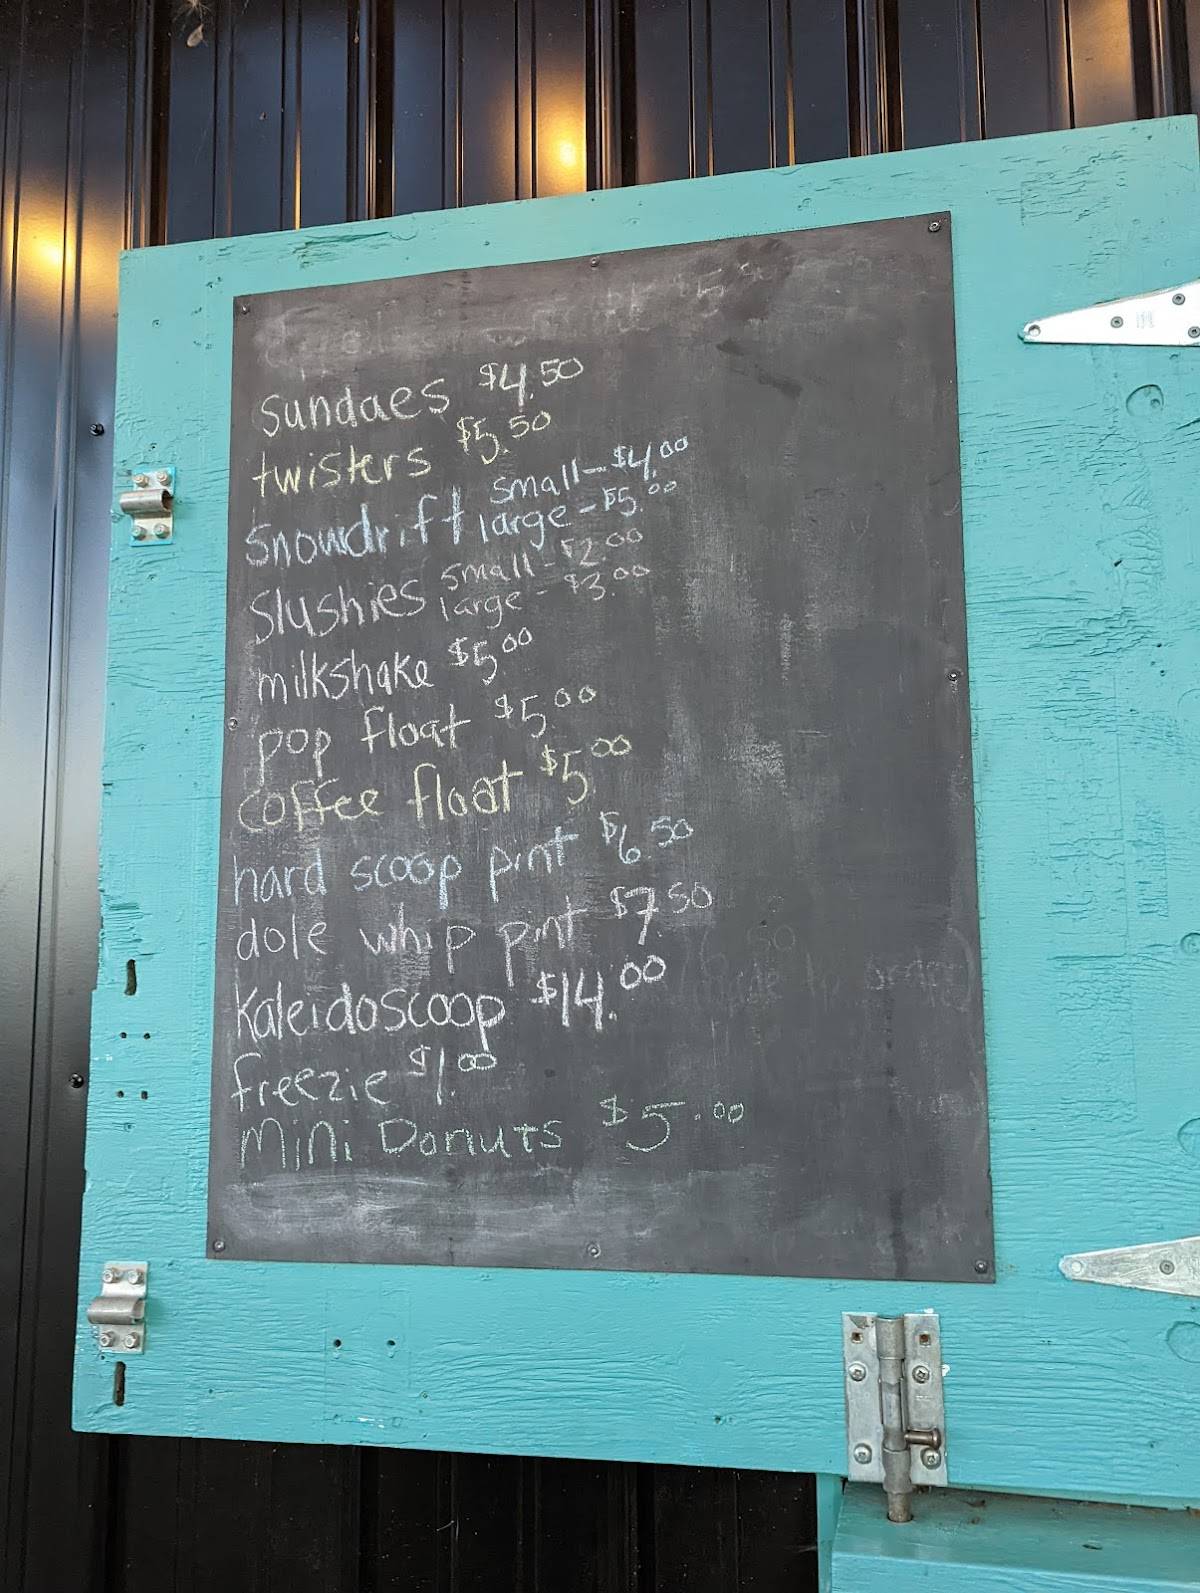 Sundaes $4.50
twisters $5.50
Snowdrift small - $4.00
large - $5.00
Slushies small - $2.00
large - $3.00
milkshake $5.00
pop float $5.00
coffee float $5.00
hard scoop pint $6.50
dole whip pint $7.50
Kaleidoscoop $14.00
freezie $1.00
Mini Donuts $5.00